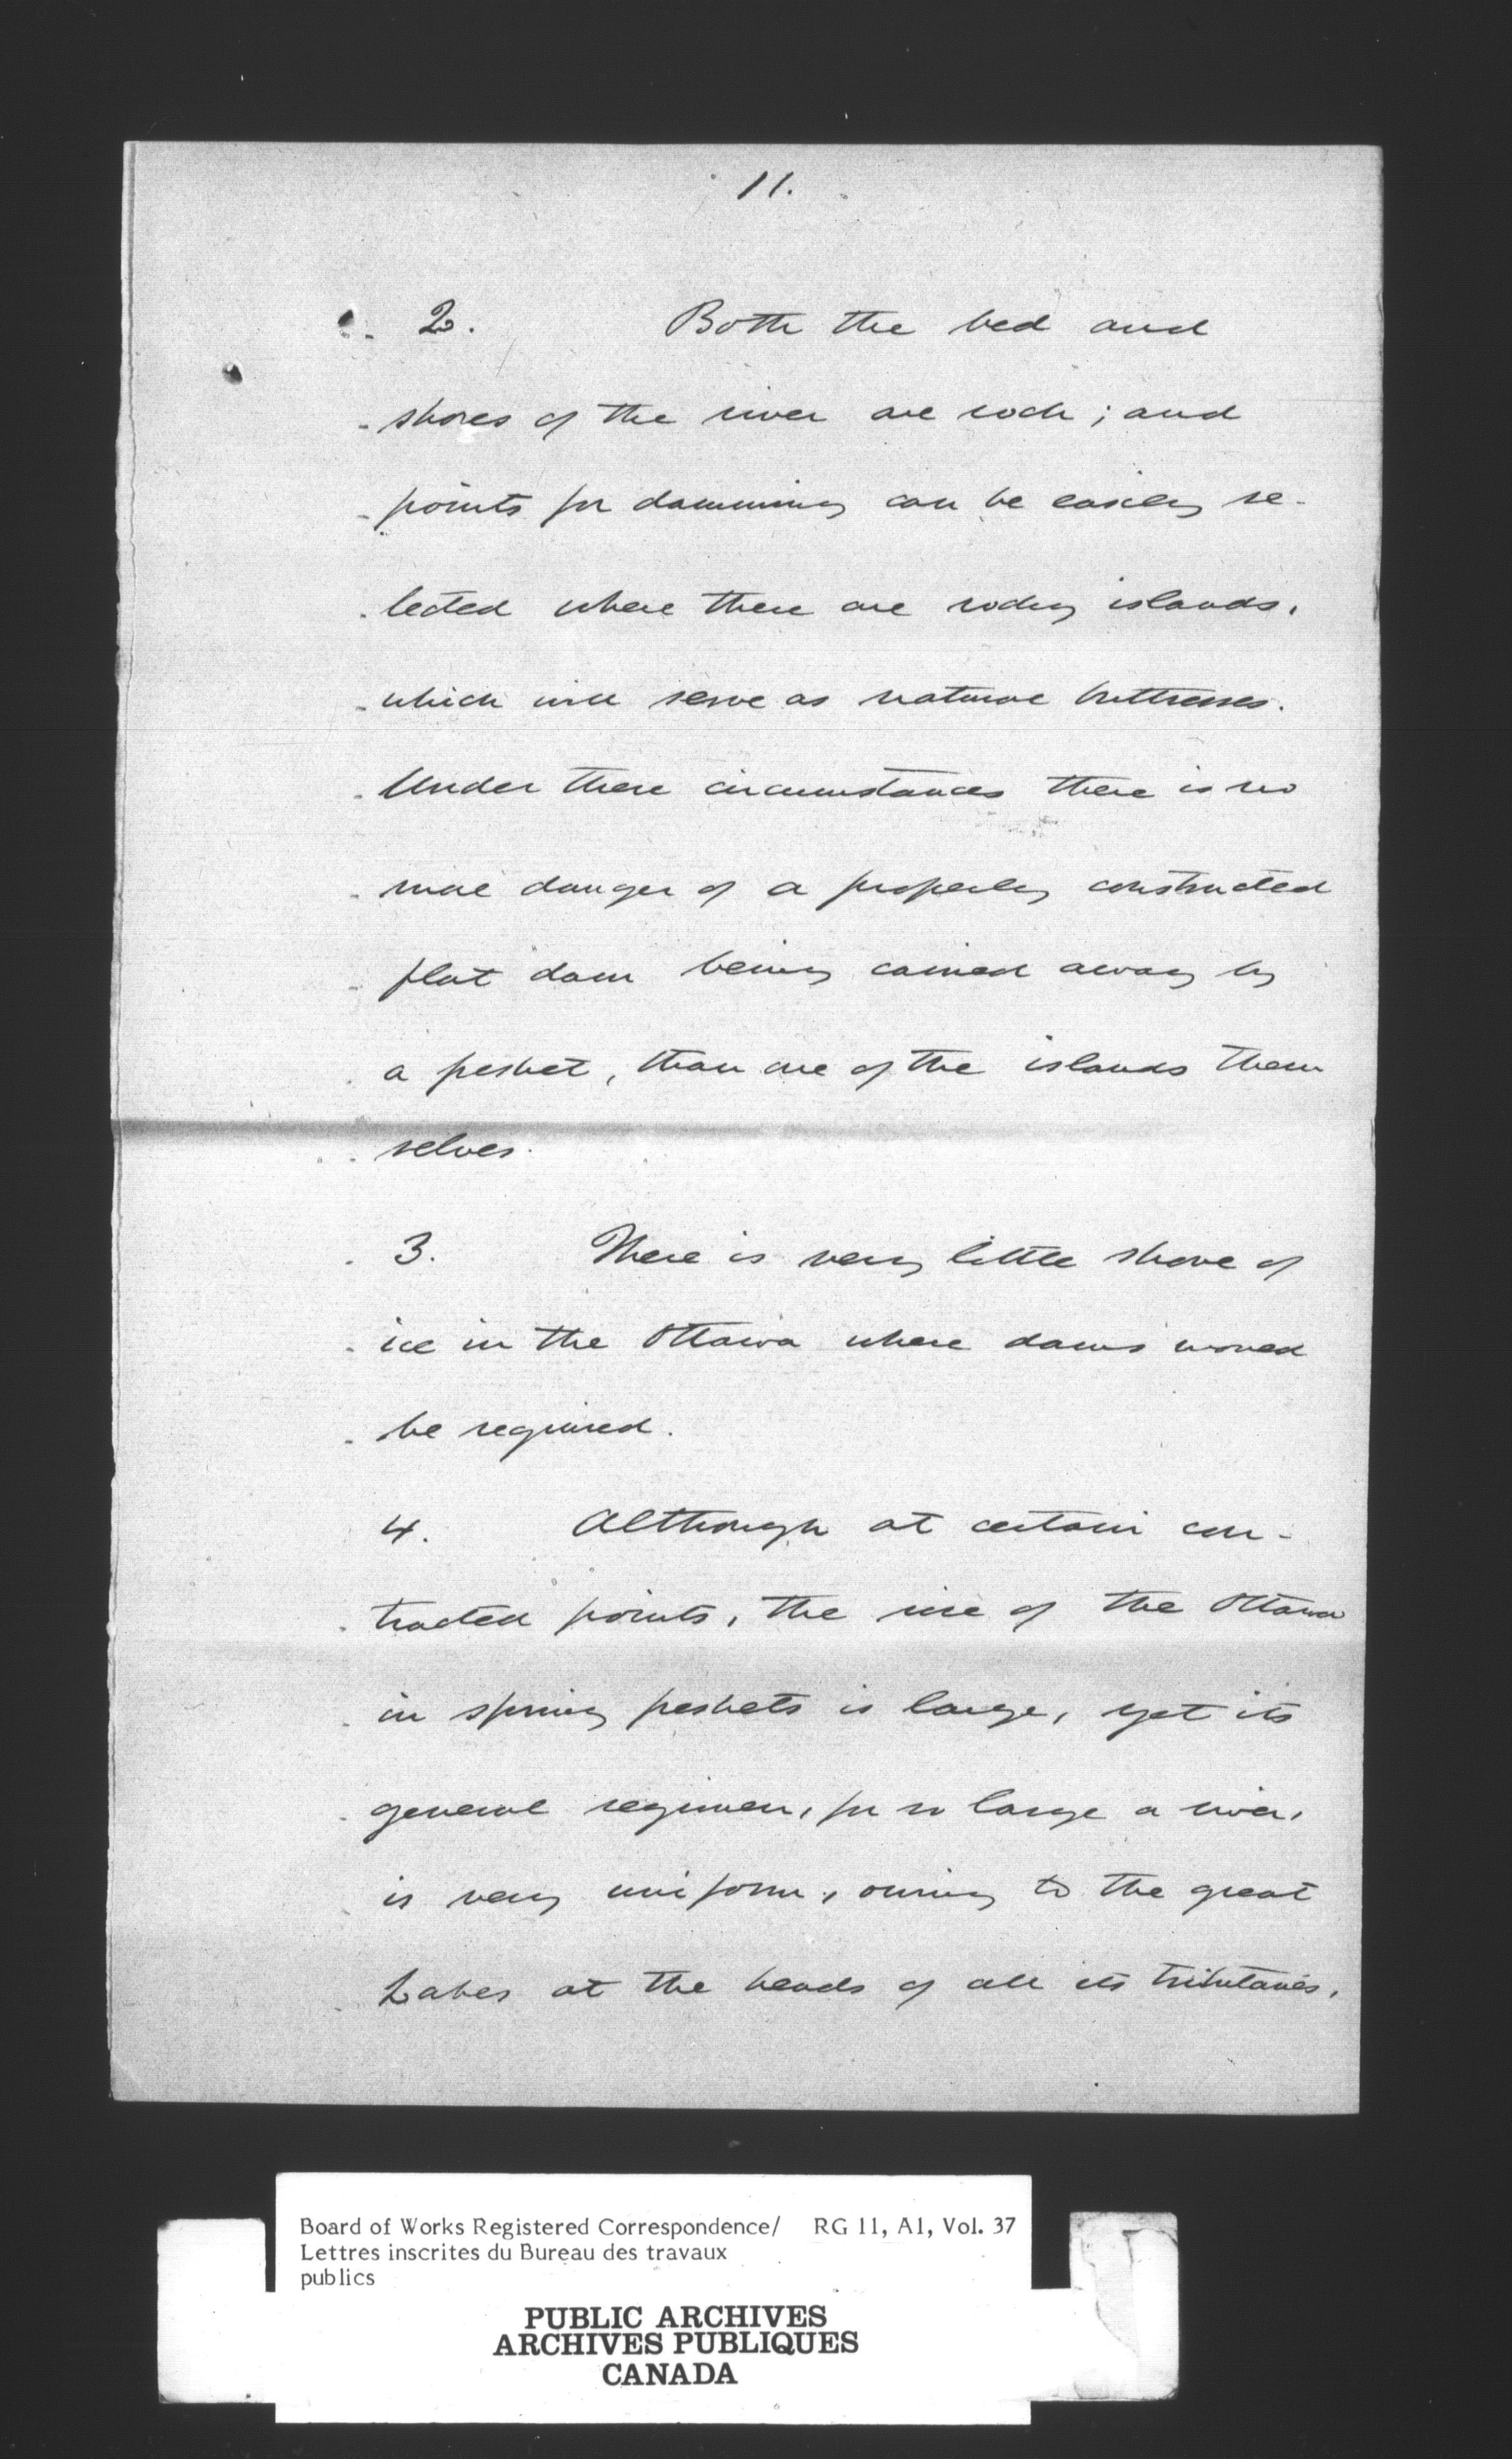 11.
2. Both the bed and
shores of the river are rock; and
points for damming can be easily se-
lected where there are rocky islands,
which will serve as natural buttresses.
Under these circumstances there is no
more danger of a properly constructed
flat dam being carried away by
a freshet, than one of the islands them
selves.
3. There is very little shove of
ice in the Ottawa where dams would
be required.
4. Although at certain con-
tracted points, the rise of the Ottawa
in spring freshets is large, yet its
general regimen, for so large a river,
is very uniform, owing to the great
Lakes at the heads of all its tributaries,
Board of Works Registered Correspondence/ RG 11, A1, Vol. 37
Lettres inscrites du Bureau des travaux
publics
PUBLIC ARCHIVES
ARCHIVES PUBLIQUES
CANADA